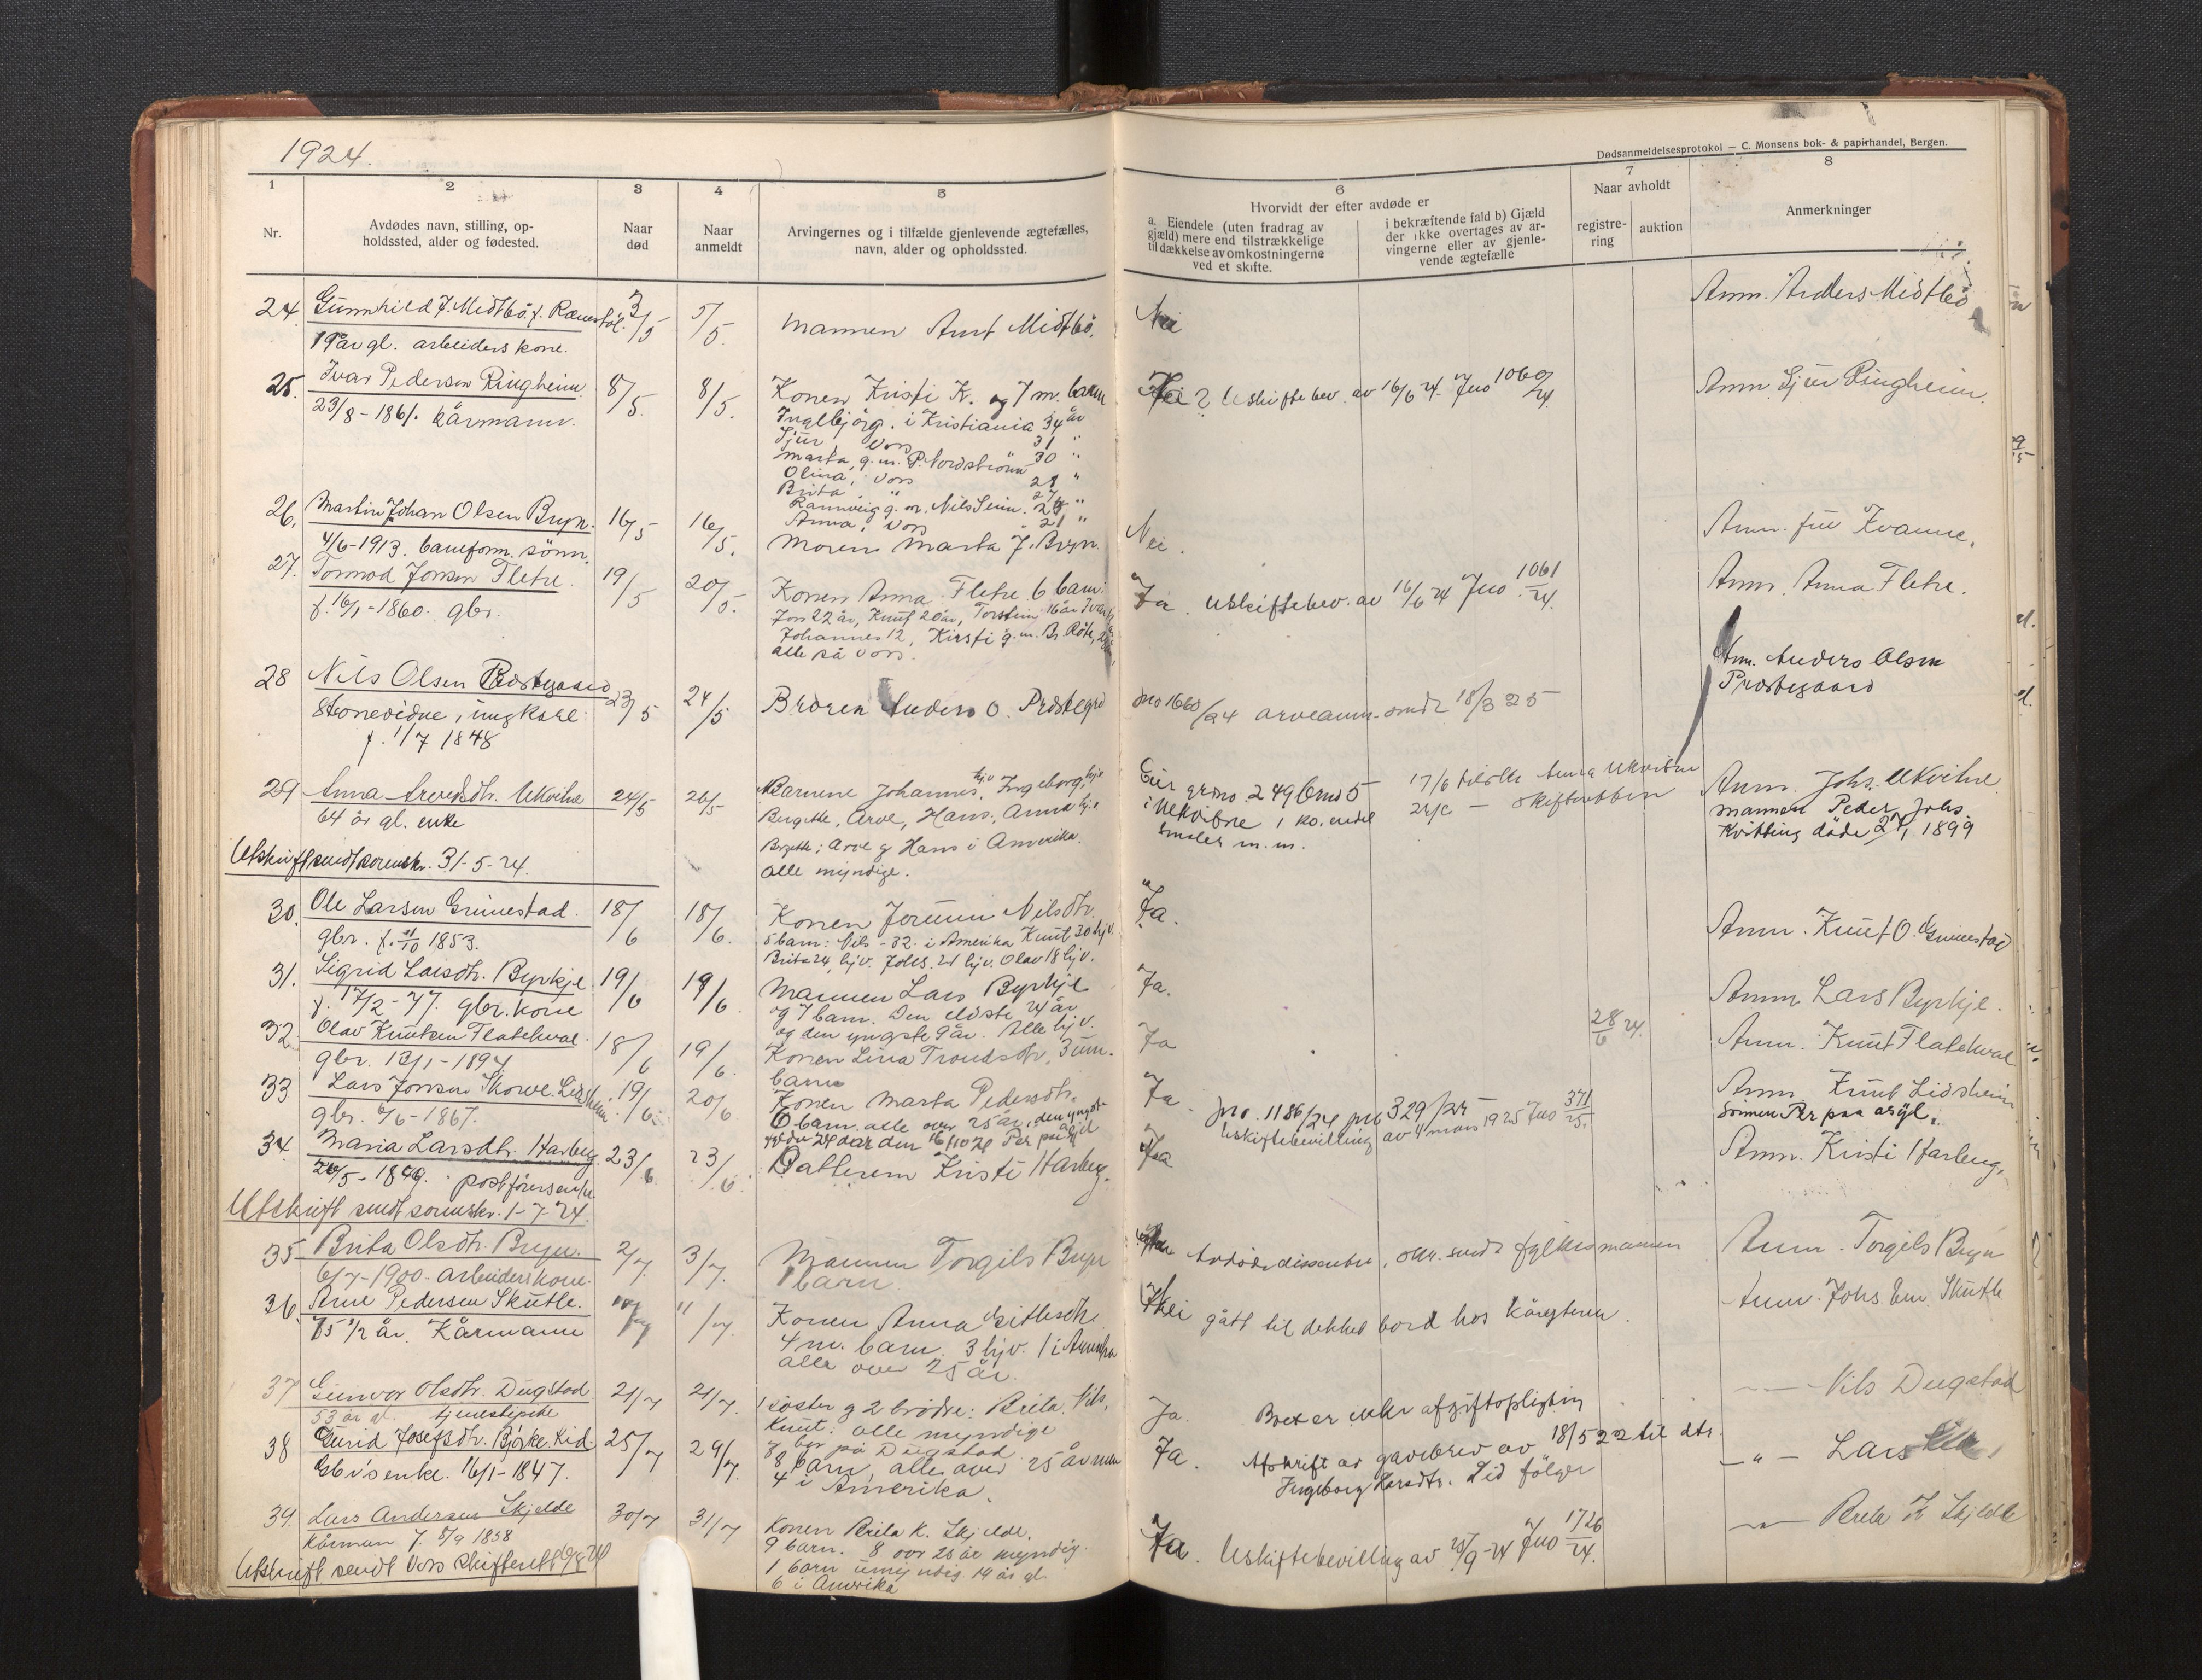 1924.
Dødsanmeldelsesprotokol — C. Monsens bok- & papirhandel, Bergen.
1
Nr.
2
Avdødes navn, stilling, op-
holdssted, alder og fødested.
3
Naar
død
4
Naar
anmeldt
5
Arvingernes og i tilfælde gjenlevende ægtefælles,
navn, alder og opholdssted.
6
Hvorvidt der efter avdøde er
a. Eiendele (uten fradrag av
gjæld) mere end tilstrækkelige
til dækkelse av omkostningerne
ved et skifte.
i bekræftende fald b) Gjæld
der ikke overtages av ar-
vingerne eller av gjenle-
vende ægtefælle
7
Naar avholdt
registre-
ring
auktion
8
Anmerkninger
24. Gunnhild J. Midtbö f.
19 år gl. arbeiders kone.
3/5
5/5.
Mannen Arnt Midtbö.
Nei
Anm. Anders Midtbö
25. Ivar Pedersen Ringheim
23/8-1861. Kårmann.
8/5.
8/5.
Konen Kristi K. og 7 m. barn
Ingebjörg. i Kristiania 34 år
Sjur Vors 31 "
Marta, g.m. P. Nordström 30 "
Olina, Vors "
Brita " 27 "
Rannveig g.m. Nils
Anna, Vors 21 "
Uskiftebev. av 16/6 24. Jno 1060/24.
Anm. Sjur Ringheim.
26. Martin Johan Olsen Bryn.
4/6-1913. baneform. sönn.
16/5
16/5.
Moren Marta J. Bryn.
Nei.
Anm. fru Kvamme.
27. Tormod Jonsen Fletre.
f. 16/1-1860. gbr.
19/5
20/5.
Konen Anna Fletre 6 barn:
Jon 22 år, Knut 20 år, Torstein 16 år Ivar
Johannes 12, Kirsti g.m. Br. Röte,
alle på Vors.
Ja. Uskiftebev. av 16/6 24 Jno 1061/24.
Anm. Anna Fletre.
28 Nils Olsen Prestegaard
ungkarl
f. 1/7 1848
23/5
24/5
Broren Anders O. Prestegrd
Jno 1660/24 arveanm. sendt 18/3 25
Anm. Anders Olsen
Prestegaard
29 Anna Arvesdtr. Ukvitne
64 år gl. enke
24/5
26/5
Barnene Johannes, hjv Ingeborg, hje
Birgitte, Arve, Hans, Anna hje
Birgitte, Arve g Hans i Amerika.
alle myndige.
Eier grno 249 brno 5
i Ukvitne 1 ko, endel
smaler m.m.
17/6 tilstilt Anna Ukvitne
Skifteretten
Anm. Johs. Ukvitne
Mannen Peder Johs.
Kvitting döde 1899
Utskrift sendt sorenskr. 31-5-24.
30. Ole Larsen Grimestad.
gbr. f. 1853.
18/6
18/6.
Konen Jorunn Nilsdtr.
5 barn: Nils - 32. i Amerika Knut 30 hjv.
Brita 24 hjv. Johs. 21 hjv. Olav 18 hjv.
Ja.
Anm. Knut O. Grimestad
31. Sigrid Larsdtr. Byrkje
f. 17/2-77. gbr. kone
19/6
19/6
Mannen Lars Byrkje
og 7 barn. Den eldste 24 år
og den yngste 9 år. Alle hjv.
Ja.
Anm. Lars Byrkje.
32. Olav Knutsen Flatekval
gbr. 1894
18/6
19/6.
Konen Lina Trondsdtr, 3 um.
barn
Ja
28/6 24.
Anm. Knut Flatekval
33 Lars Jonsen Skorve. Lidsheim
gbr. 6/6-1867.
19/6.
20/6
Konen Marta Pedersdtr.
6 barn. alle over 25 år, den yngste
Ja. Jno. 1186/24 jno 329/25
Uskiftebevilling av 4 mars 1925 Jno 371/25.
Anm. Knut Lidsheim
Sönnen Per paa asyl.
34. Maria Larsdtr. Harberg.
postförersenke
23/6
23/6
Datteren Kristi Harberg.
Ja
Anm. Kristi Harberg.
Utskrift sendt sorenskr. 1-7-24.
35 Brita Olsdtr. Bryn.
6/7-1900. arbeiderskone.
2/7.
3/7.
Mannen Torgils Bryn
1 barn
Avdöde dissenter, sendt fylkesmannen
Anm. Torgils Bryn
36. Arne Pedersen Skutle.
75 1/2 år. Kårmann
11/7.
Konen Anna Gitlesdtr.
4 m. barn. 3 hjv. 1 i Amerika
alle over 25 år.
Nei gått til dekket bord hos
Anm. Johs. Skutle
37 Gunvor Olsdtr. Dugstad
53 år gl. tjenestepike
21/7
21/7.
1 söster g 2 brödre: Brita. Nils,
Knut: alle myndige
g bor på Dugstad
Ja. Boet er ikke afgiftspligtig
— Nils Dugstad
38 Gurid Josefsdtr. Björke. Lid.
Gbr's enke. 16/1-1847.
25/7
29/7.
8 barn, alle over 25 år
4 i Amerika.
Ja. Afskrift av gavebrev av 18/5 22 til dtr.
Ingeborg Larsdtr. Lid fölger
— " — Lars Lid
39. Lars Andersen Skjelde
Kårmann f. 1858
30/7
31/7
Konen Brita K. Skjelde.
9 barn. 8 over 25 år myndig.
1 barn umyndig 19 år gl.
6 i Amerika
Ja. Uskiftebevilling av 25/9-24 Jno 1726/24.
— " — Brita K Skjelde
Utskrift sendt Vors Skifterett